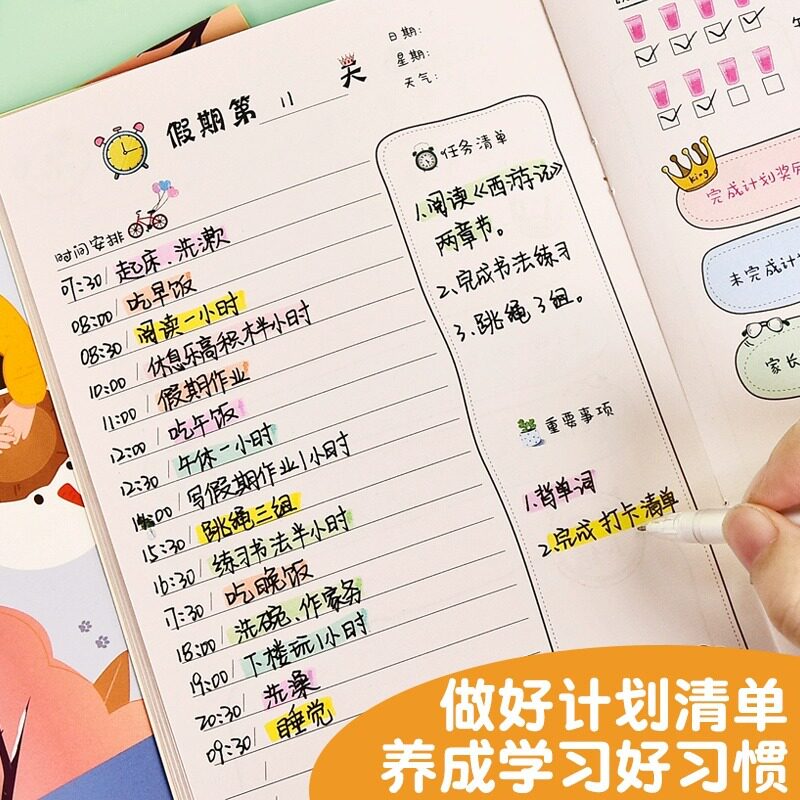 假期第 11 天
日期:
星期:
天气:
时间安排
07:30/起床、洗漱
08:00/吃早饭
08:30/阅读一小时
10:00/休息乐高积木半小时
11:00/假期作业
12:00/吃午饭
12:30/午休一小时
14:00/写假期作业1小时
15:30/跳绳三组
16:30/练习书法半小时
17:30/吃晚饭
18:00/洗碗、作家务
19:00/下楼玩1小时
20:30/洗澡
09:30/睡觉
任务清单
1.阅读《西游记》
两章节。
2.完成书法练习
3.跳绳3组。
重要事项
1.背单词
2.完成打卡清单
king
完成计划奖
未完成计
家长
做好计划清单
养成学习好习惯